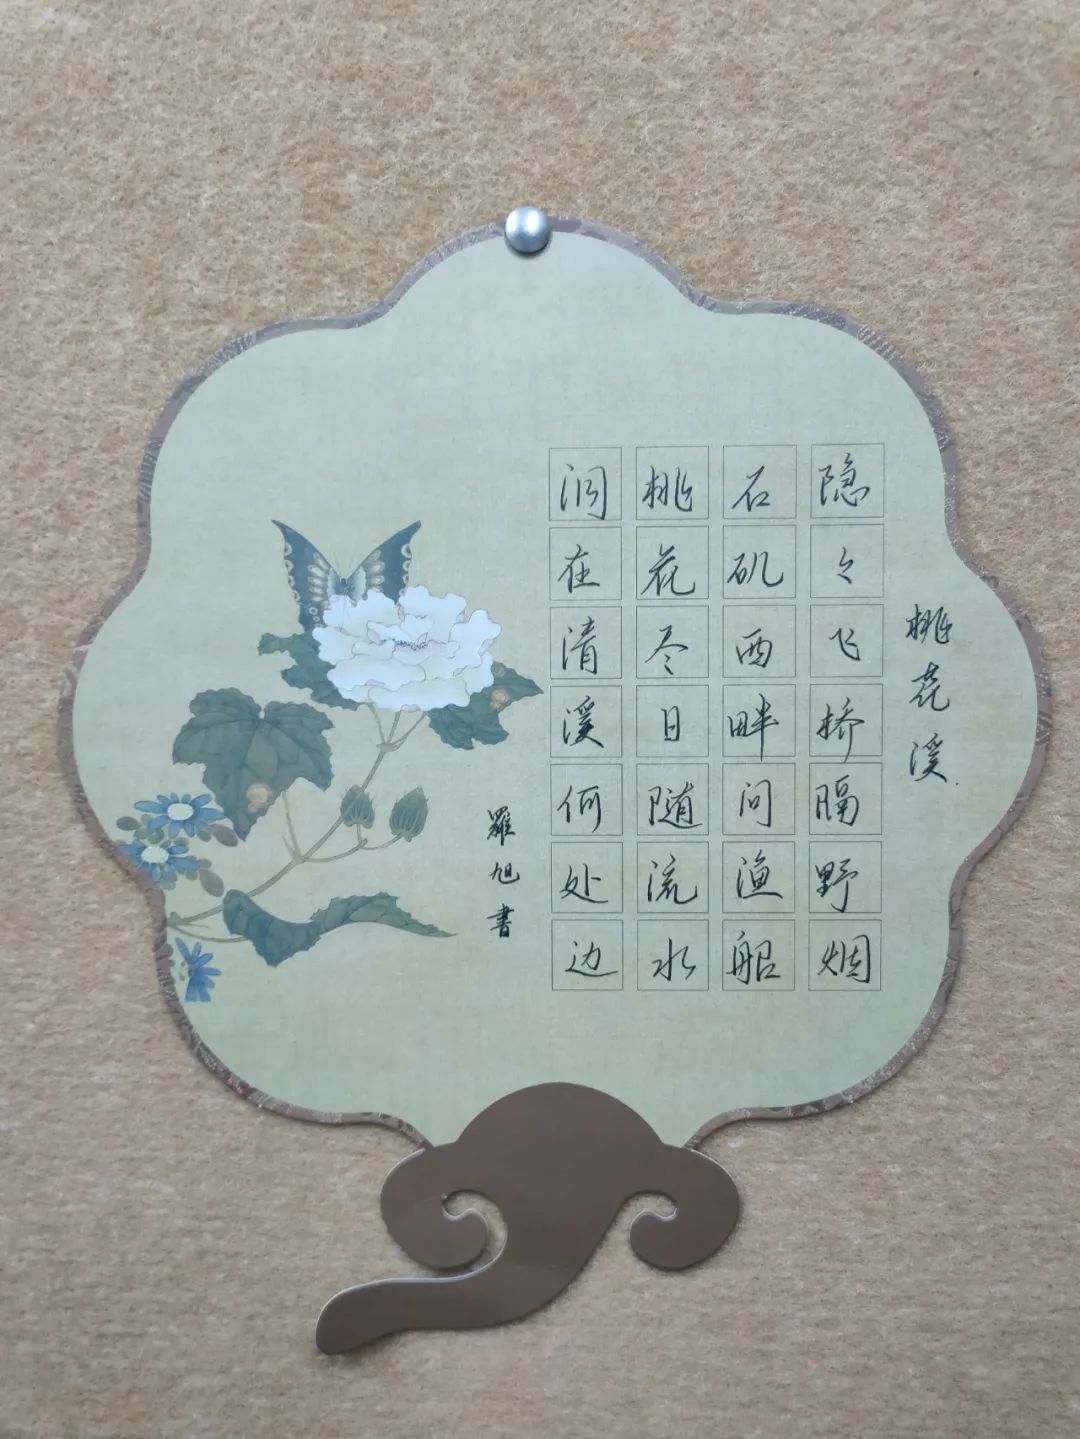 桃花溪
隐々飞桥隔野烟
石矶西畔问渔船
桃花尽日随流水
洞在清溪何处边
羅旭書